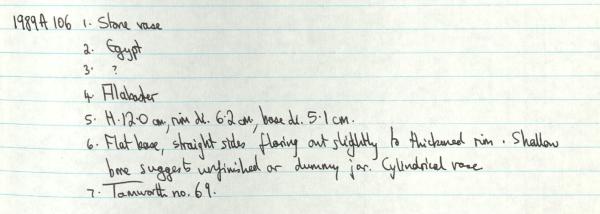 1989A106 1. Stone vase
2. Egypt
3. ?
4. Alabaster
5. H. 12.0 cm, rim di. 6.2 cm, base di. 5.1 cm.
6. Flat base, straight sides flaring out slightly to thickened rim. Shallow
bore suggests unfinished or dummy jar. Cylindrical vase
7. Tamworth no. 69.